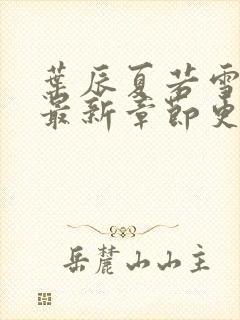 葉辰夏若雪
最新章節更
岳麓山山主